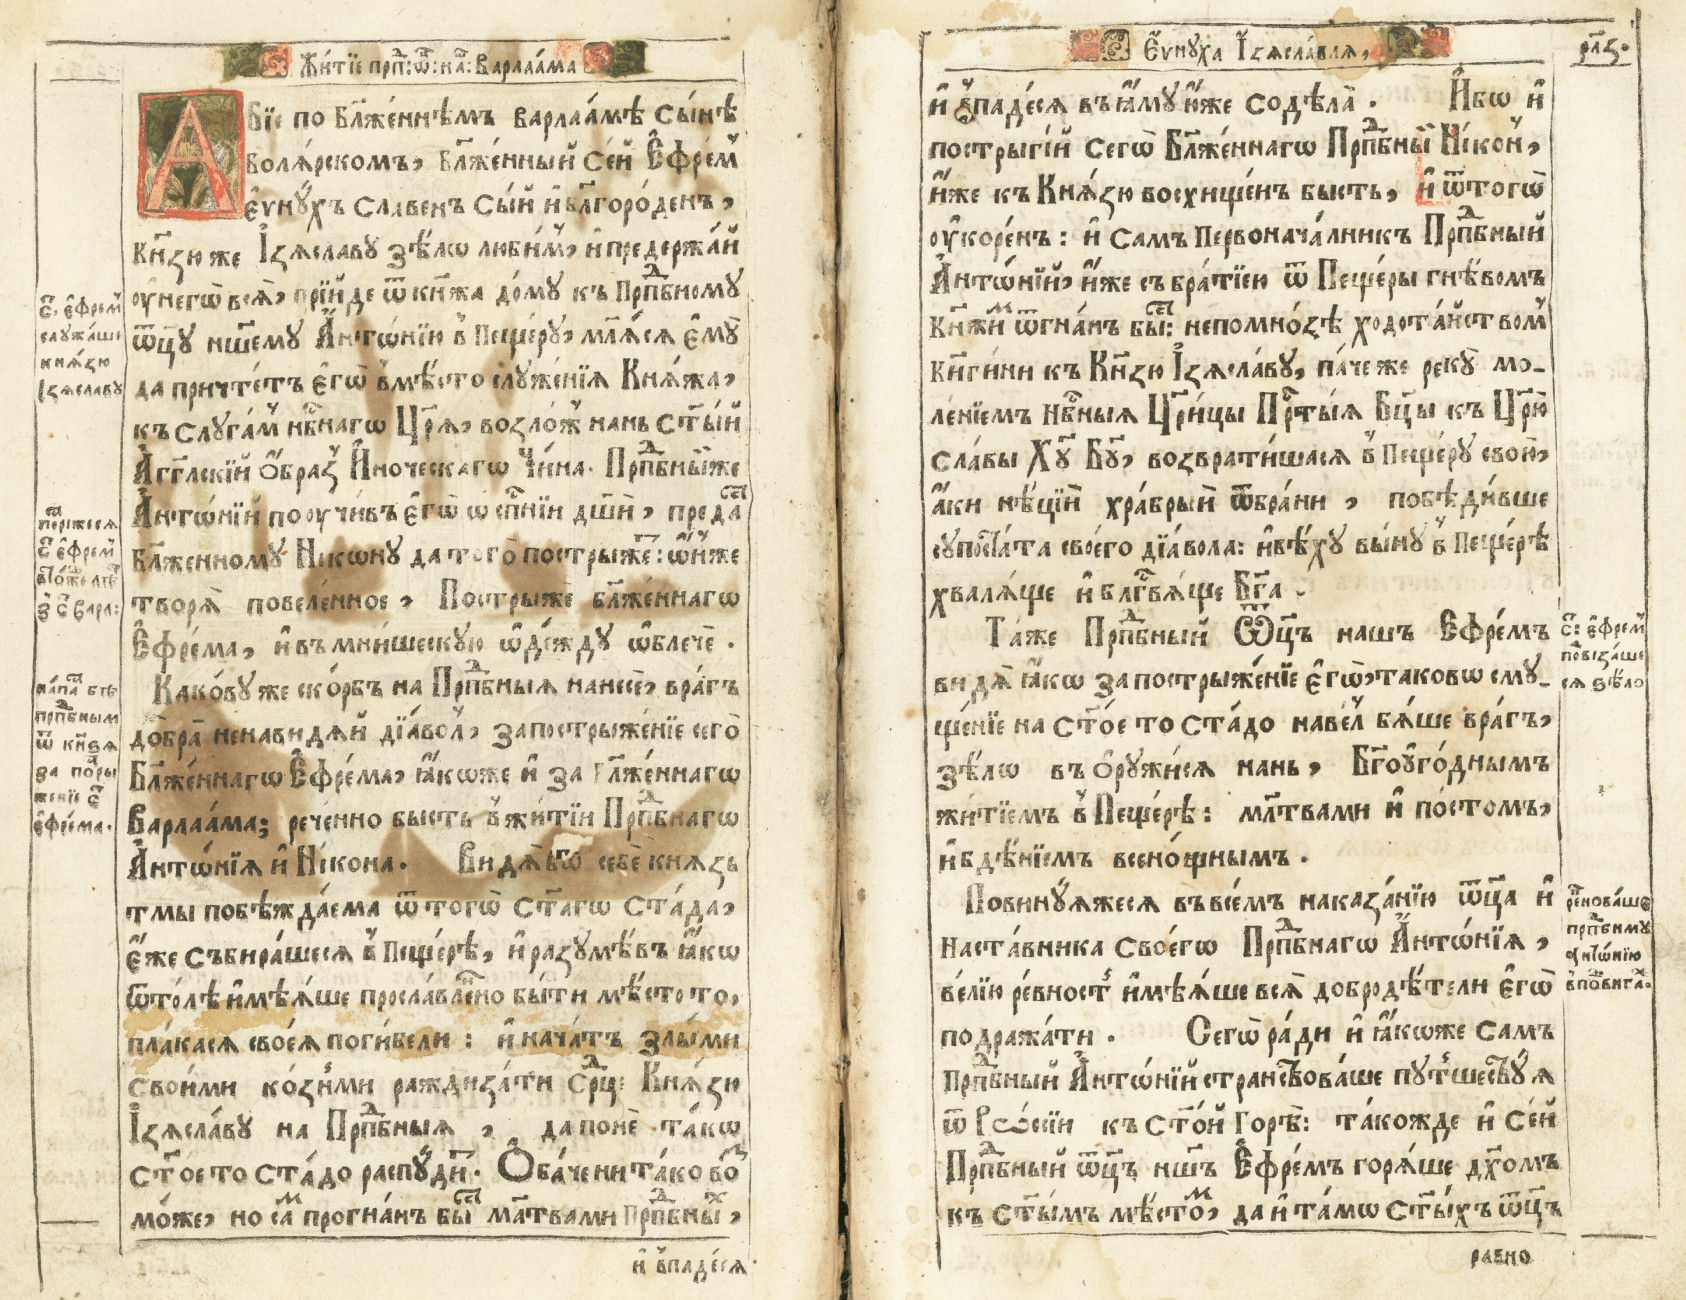 Житїе прп҃: ѿ: нш҃: Варлаама
Абїе по Бл҃же́ннѣмъ варлаа́мѣ сы́нѣ
Болѧрскомъ, Бл҃же́нный се́й Є҆фре́м
є҆ѵну́хъ славенъ сы́й и҆ бл҃горо́денъ,
Кн҃зю же І҆зѧславу зѣ́лѡ люби́м, и҆ предержа́й
ѹ҆ негѡ̀ всѧ̀, прїйде ѿ кн҃жа до́му къ Прп҃дбному
Ѿц҃у нш҃ему А҆нтѡ́нїю в̾ Пеще́ру, мл҃ѧ́сѧ є҆мꙋ̀
да причте́тъ є҆гѡ̀ в̾мѣ́сто слꙋже́нїѧ Кнѧ́жа,
къ слꙋга́м нб҃наго Цр҃ѧ̀, возло́ж на́нь ст҃ы́й
А҆гг҃лскїй ѻ҆́браз И҆ночєскагѡ Чи́на. Прп҃дбны́йже
А҆нтѡ́нїй поѹчи́въ є҆гѡ̀ ѡ сп҃нїи дш҃и̂, преда́сѧ
бл҃женному Ні́кѡну да того̀ постриже́: ѡ҆́нже
творѧ̀ повеле́нное, Пострыжѐ бл҃же́ннагѡ
Є҆фре́ма, и҆ въ мни́шескую ѡ҆де́жду ѡ҆блечѐ.
Како́ву же ско́рбъ на Прп҃дбныѧ нанесѐ, вра́гъ
до̀бра ненави́дѧй дїа́вол, за пострыже́нїе сего̀
Бл҃же́ннагѡ Є҆фре́ма, ꙗ҆́коже и҆ за Бл҃же́ннагѡ
Варлаа́ма; рече́нно бысть в̾ жи́тїи Прп҃дбнагѡ
А҆нтѡ́нїѧ и҆ Ні́кона. Ви́дѧ бо себѐ кнѧзь
тмы побѣжда́ема ѿ тогѡ̀ ст҃а́гѡ Ста́да,
є҆́же събира́шесѧ в̾ Пеще́рѣ, и҆ разумѣ́въ ꙗ҆́кѡ
ѿто́лѣ и҆мѣ́ѧше просла́влено бы́ти мѣ́сто то,
пла́касѧ своеѧ̀ поги́бели: и҆ нача́тъ злы́ми
свои́ми ко́зньми раждиза́ти ср҃дц: Кнѧ́зю
І҆зѧсла́ву на Прп҃дбныѧ, да понѐ та́кѡ
ст҃о́е то ста́до распу́дит. Ѻ҆ба́че ни та́ко во́з
мо́же, но са́м прогна́нъ бы́сть мл҃твами Прп҃дбны́х,
и҆ в̾паде́сѧ
с҃. є҆фре́м
слꙋжа́ше
кнѧ́зю
Ізѧславу
пости́жесѧ
с҃. є҆фре́м
з҃ с҃. варл:
напа́сть бѣ̀
прп҃дбным
ѿ кн҃зѧ
за по́стры
женїе с҃.
є҆фре́ма.
Є҆ѵну́ха І҆зѧсла́влѧ,
рл҃з.
и҆ в̾паде́сѧ въ ꙗ҆́му ю҆́же содѣ́ла. И҆́бѡ и҆
пострыгі́й сего̀ Бл҃же́ннагѡ Прп҃дбный Ні́кон,
и҆́же къ Кнѧ́зю восхище́нъ бысть, и҆ ѿ тогѡ̀
ѹ҆коре́нъ: и҆ самъ Первонача́лникъ Прп҃дбный
А҆нтѡ́нїй, и҆́же съ бра́тїею ѿ Пеще́ры гнѣ́вомъ
Кн҃жим ѿгна́нъ бы́сть: непомно́зѣ ходота́йством
Кн҃ги́ни къ Кн҃зю І҆зѧсла́ву, па́че же рекꙋ̀ мо-
ле́нїемъ нб҃ныѧ Цр҃и́цы Прч҃тыѧ Бц҃ы къ Цр҃ю̀
сла́вы Хꙋ҃ Бг҃ꙋ, возврати́шасѧ в̾ Пеще́рꙋ свою̀,
а҆́ки нѣ́цїи хра́брыи ѿ бра́ни, побѣди́вше
супоста́та своего дїа́вола: и҆ бѣ́хꙋ вы́нꙋ в̾ Пеще́рѣ
хвалѧ́ще и҆ блг҃вѧ́ще Бг҃а.
Та́же Прп҃дбный Ѿц҃ъ нашъ Є҆фре́мъ
ви́дѧ ꙗ҆́кѡ за пострыже́нїе є҆гѡ̀, таковѡ сму-
ще́нїе на ст҃о́е то ста́до наве́л бѧ́ше врагъ,
зѣ́лѡ въѻружи́сѧ на́нь, Бг҃оуго́днымъ
житїемъ в̾ Пеще́рѣ: мл҃твами и҆ посто́мъ,
и҆ бдѣ́нїемъ всено́щнымъ.
Повинꙋ́ѧжесѧ въ все́мъ наказа́нїю ѿц҃а и҆
наста́вника своегѡ Прп҃дбнагѡ А҆нтѡ́нїѧ,
ве́лїю ре́вность и҆мѣ́ѧше всѧ̀ добродѣ́тели є҆гѡ̀
подража́ти. Сегѡ̀ ра́ди и҆ ꙗ҆́коже самъ
Прп҃дбный А҆нтѡ́нїй стра́нствоваше путешеству́ѧ
ѿ Рѡссі́и къ ст҃о́й Горѣ̀: та́кожде и҆ се́й
Прп҃дбный ѿц҃ъ нш҃ъ Є҆фре́мъ горѧ́ше дх҃омъ
къ ст҃ы́мъ мѣ́стом, да и҆ та́мѡ ст҃ы́хъ ѿц҃ъ
равно
с҃: є҆фре́м
подвиза́ше
сѧ зѣ́ло
ре́внова́ше
прп҃дбнмꙋ
а҆нтѡ́нїю
в̾ подвига́х.